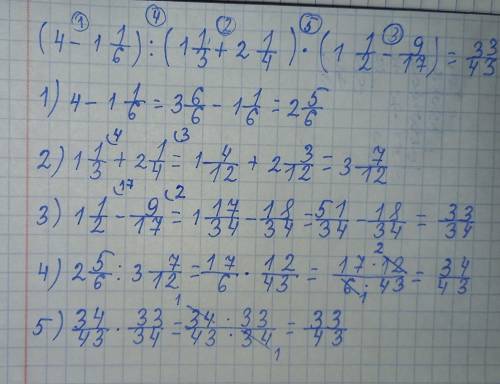 ① ④ ② ⑤ ③
(4 - 1 1/6) : (1 1/3 + 2 1/4) · (1 1/2 - 9/17) = 33/43
1) 4 - 1 1/6 = 3 6/6 - 1 1/6 = 2 5/6
2) 1 1/3 4 + 2 1/4 3 = 1 4/12 + 2 3/12 = 3 7/12
3) 1 1/2 17 - 9/17 2 = 1 17/34 - 18/34 = 51/34 - 18/34 = 33/34
4) 2 5/6 : 3 7/12 = 17/6 · 12/43 = 17 · 12 2/6 1 · 43 = 34/43
5) 34/43 · 33/34 = 1 34 · 33/43 · 34 1 = 33/43